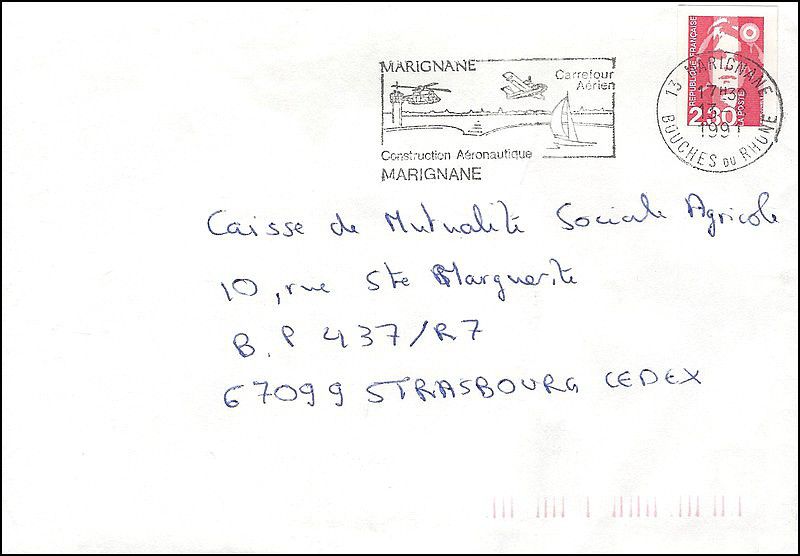 MARIGNANE
Carrefour
Aérien
Construction Aéronautique
MARIGNANE
RÉPUBLIQUE FRANÇAISE
LA POSTE
13 MARIGNANE
17H30
13
1991
BOUCHES DU RHONE
Caisse de Mutualité Sociale Agricole
10, rue Ste Marguerite
B.P 437/R7
67099 STRASBOURG CEDEX